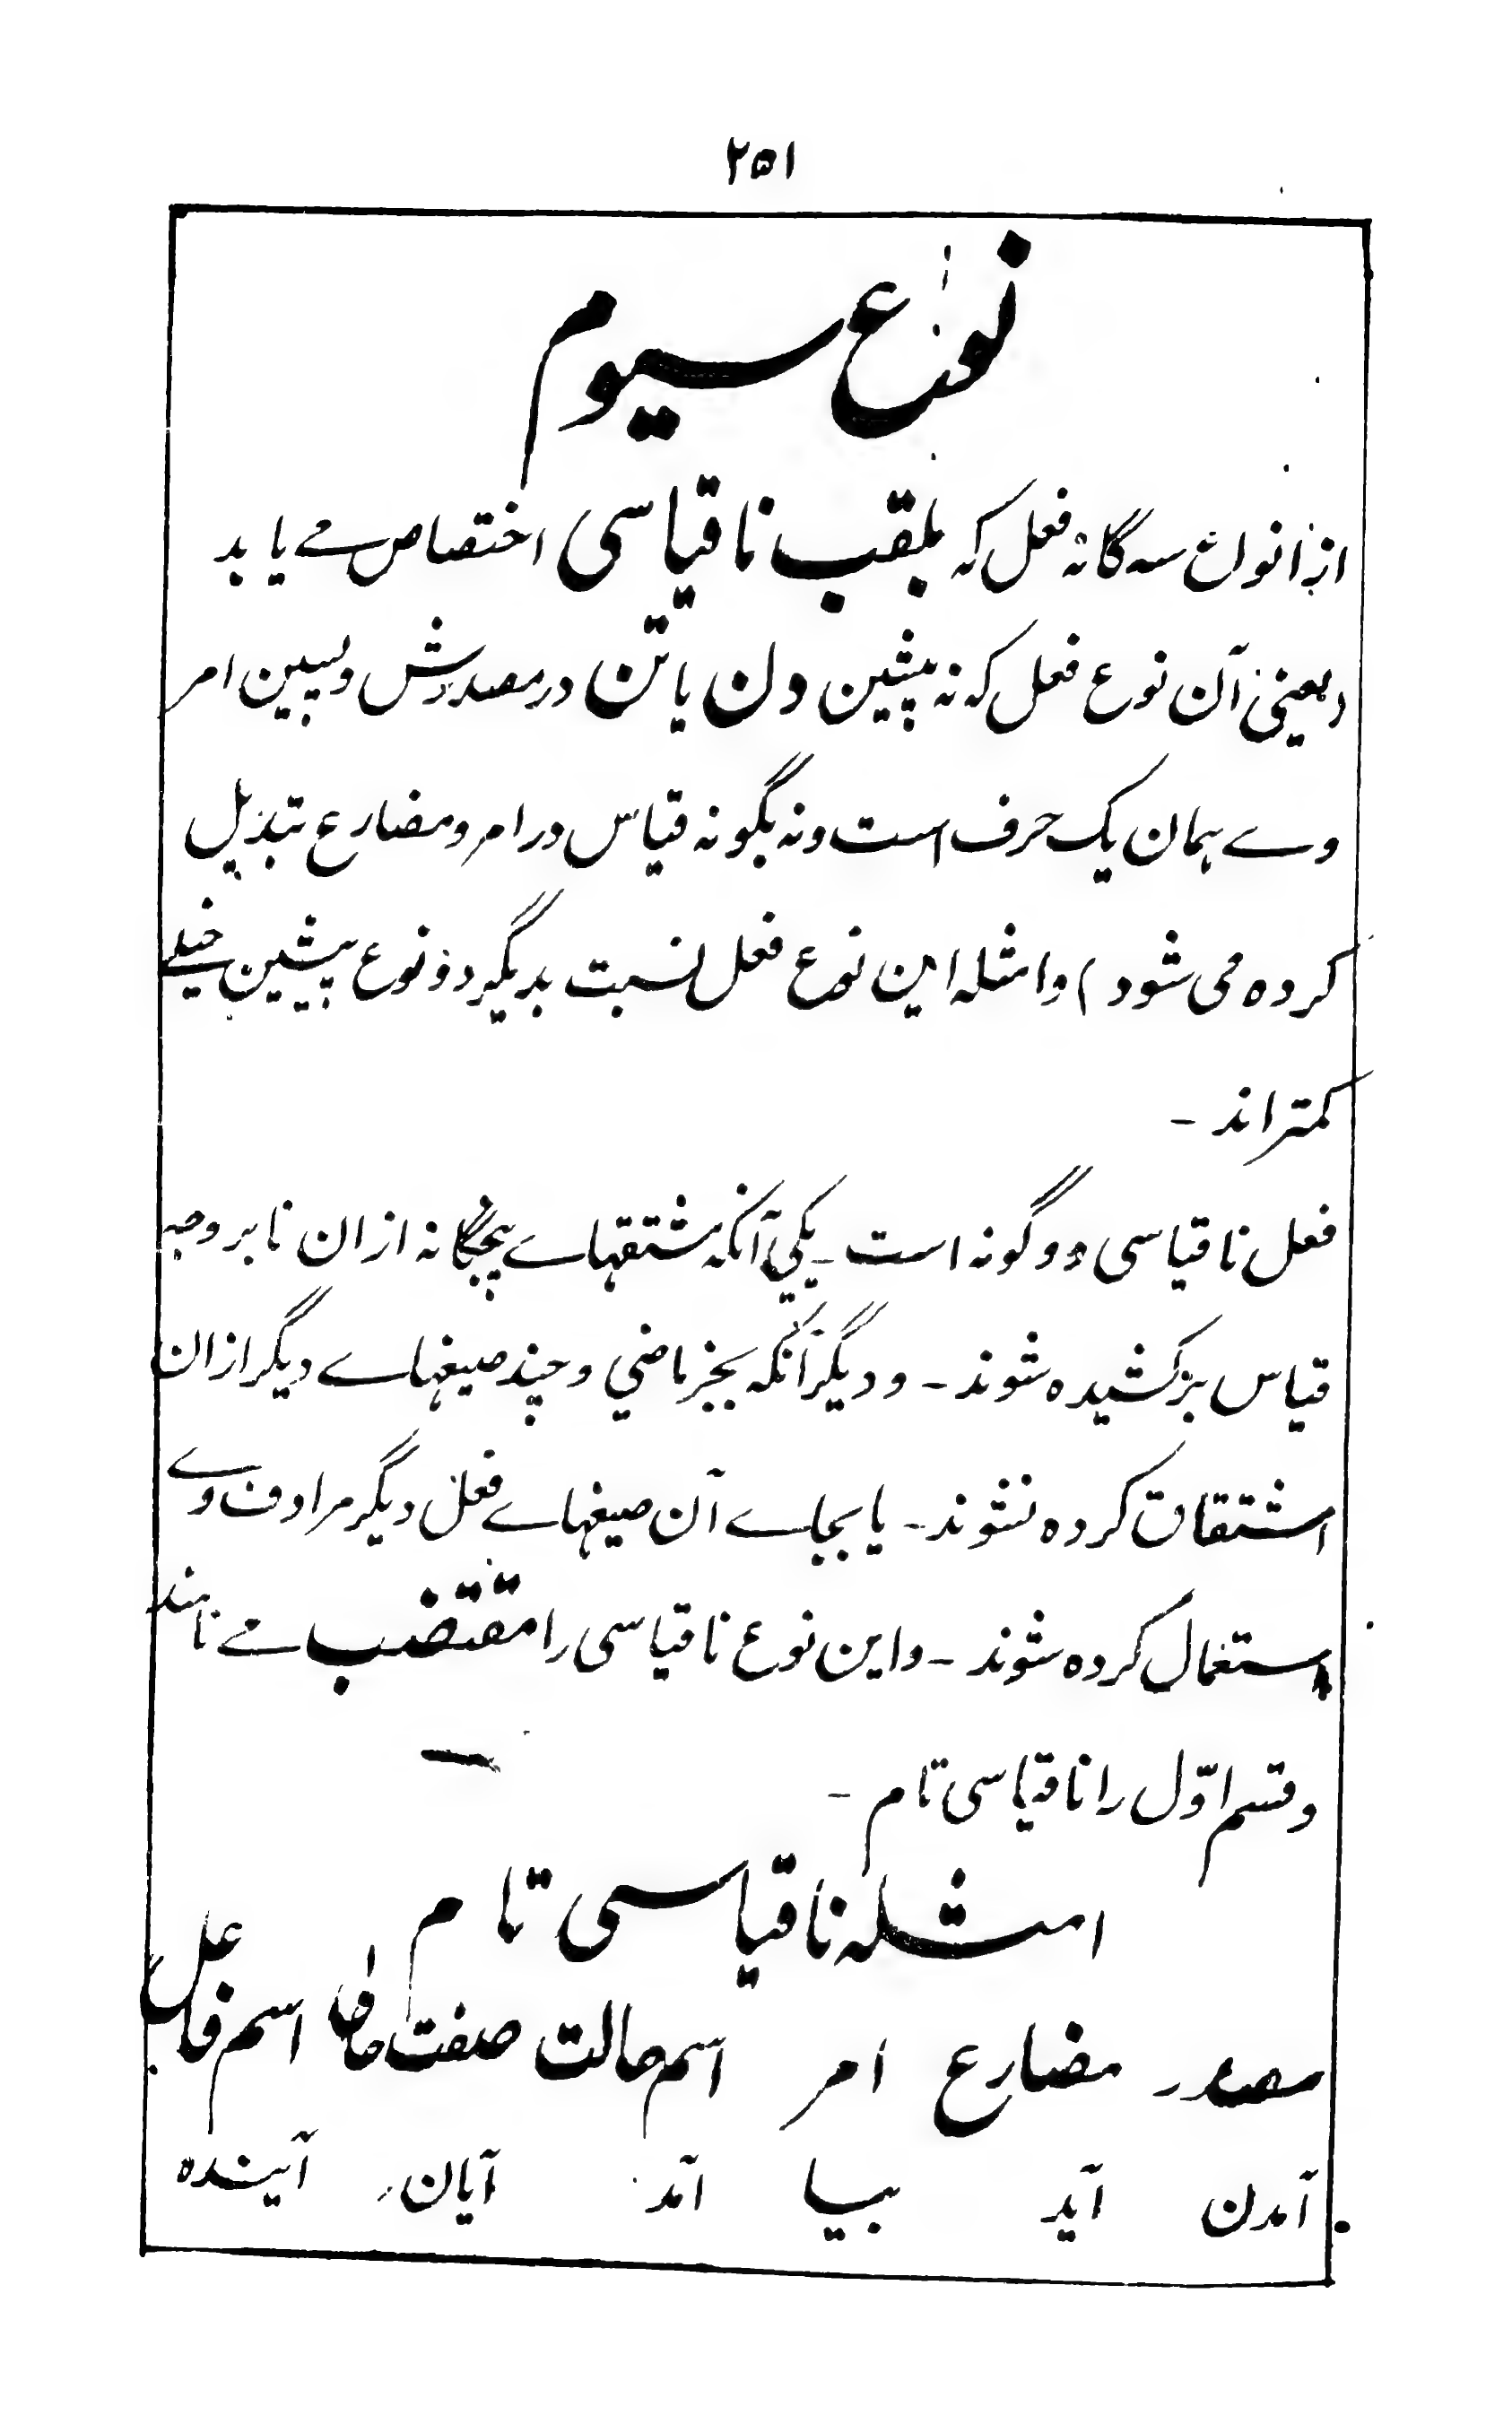 ۲۵۱
نوع سیوم
از انواع سه گانه فعل که بلقب ناقیاسی اختصاص مے یابد
(یعنی آن نوع فعل که نه پیشین دن یا تن در مصدرش و پسین امر
وے همان یک حرف است و نه بگونه قیاس در امر و مضارع تبدیل
کرده می شود) و امثله این نوع فعل نسبت بدیگر دو نوع پیشین خیلے
کمتر اند -
فعل ناقیاسی دو گونه است - یکی آنکه مشتقهاے پنجگانه ازان نابر وجه
قیاس برکشیده شوند - و دیگر آنکه بجز ماضی و چند صیغهاے دیگر ازان
اشتقاق کرده نشوند - یا بجاے آن صیغهاے فعل دیگر مرادف وے
استعمال کرده شوند - و این نوع ناقیاسی را مقتضب مے نامند
و قسم اوّل را ناقیاسی تام -
امثله ناقیاسی تام
مصدر مضارع امر اسم حالت صفت حالی اسم فاعل
آمدن آید بیا آمد آیان آینده